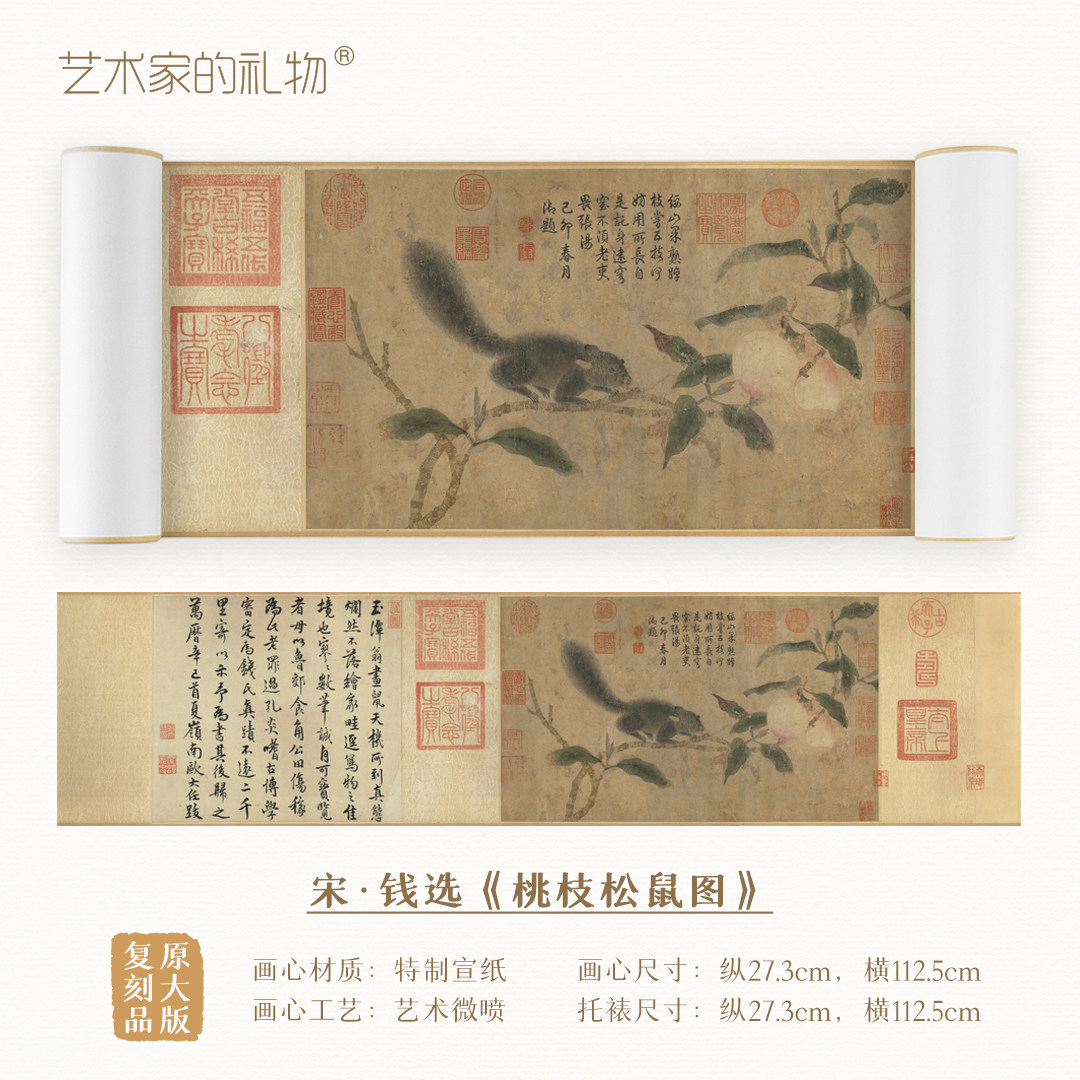 艺术家的礼物®
五福五代
堂古稀
天子寶
八徵
耄念
之寶
仙山果熟蹲
枝嘗五技何
妨用所長自
是託身遠
不須老吏
畏張湯
己卯春月
御題
玉潭翁畫鼠天機所到真態
爛然不落繪家畦逕寫物之佳
境也寥々數筆誠自可寶覽
者毋以魯郊食角公田傷稼
為此老罪過孔炎嗜古博學
審定為錢氏真蹟不遠二千
里寄以示予為書其後歸之
萬曆辛巳首夏嶺南歐大任跋
宋·钱选《桃枝松鼠图》
原大版
复刻品
画心材质：特制宣纸
画心工艺：艺术微喷
画心尺寸：纵27.3cm，横112.5cm
托裱尺寸：纵27.3cm，横112.5cm